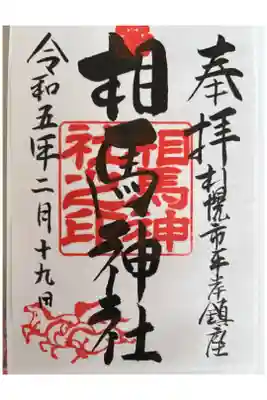 奉拝 札幌市平岸鎮座
相馬神社
相馬神
社之印
令和五年二月十九日